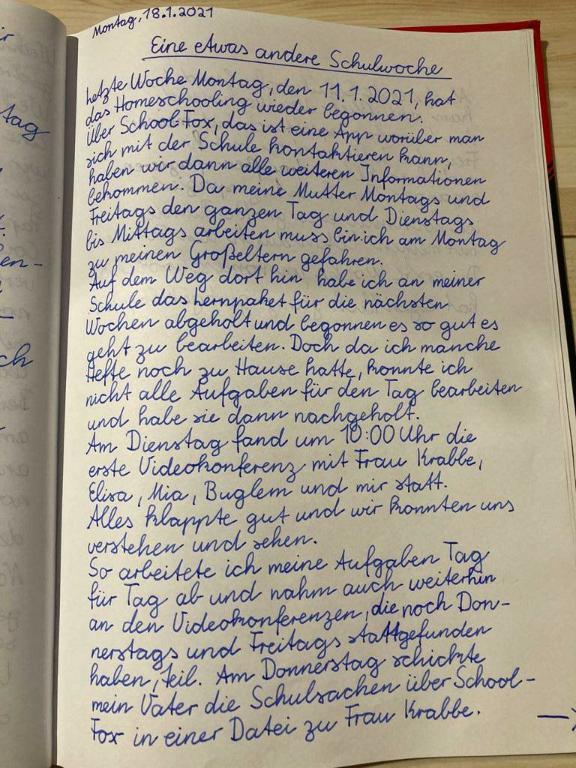 Montag, 18.1.2021
Eine etwas andere Schulwoche
Letzte Woche Montag, den 11.1.2021, hat
das Homeschooling wieder begonnen.
Über School-Fox, das ist eine App worüber man
sich mit der Schule kontaktieren kann,
haben wir dann alle weiteren Informationen
bekommen. Da meine Mutter Montags und
Freitags den ganzen Tag und Dienstags
bis Mittags arbeiten muss bin ich am Montag
zu meinen Großeltern gefahren.
Auf dem Weg dort hin habe ich an meiner
Schule das Lernpaket für die nächsten
Wochen abgeholt und begonnen es so gut es
geht zu bearbeiten. Doch da ich manche
Hefte noch zu Hause hatte, konnte ich
nicht alle Aufgaben für den Tag bearbeiten
und habe sie dann nachgeholt.
Am Dienstag fand um 10:00 Uhr die
erste Videokonferenz mit Frau Krabbe,
Elisa, Mia, Buglem und mir statt.
Alles klappte gut und wir konnten uns
verstehen und sehen.
So arbeitete ich meine Aufgaben Tag
für Tag ab und nahm auch weiterhin
an den Videokonferenzen, die noch Don-
nerstags und Freitags stattgefunden
haben, teil. Am Donnerstag schickte
mein Vater die Schulsachen über School-
Fox in einer Datei zu Frau Krabbe.
tag
en-
ch